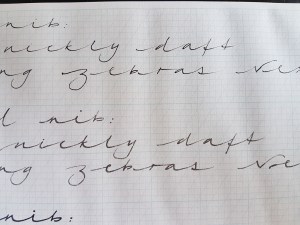 nib:
nickly daft
ng zebras
nib:
nickly daft
ng zebras
nib: